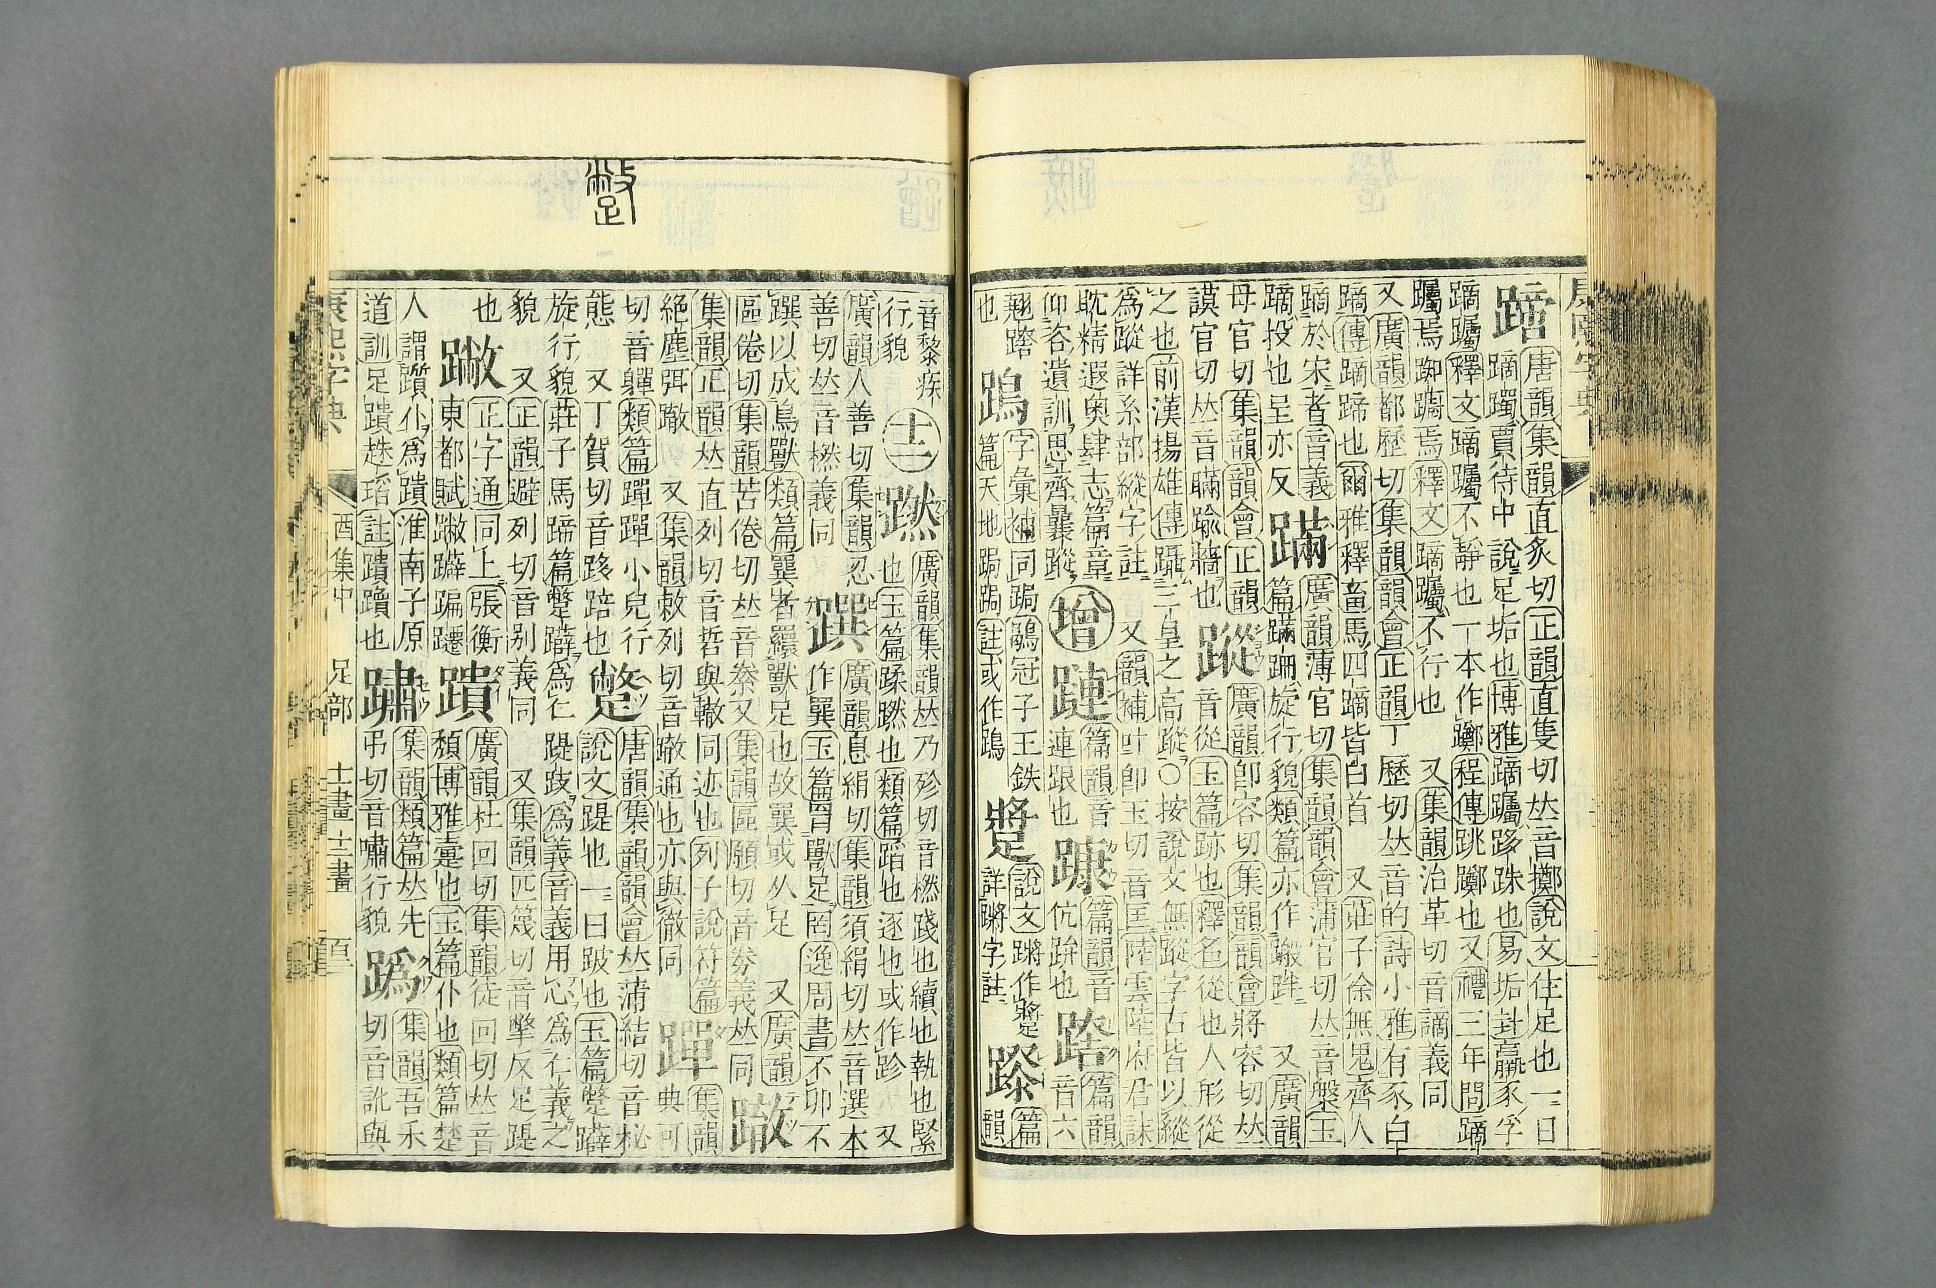 蹢
唐韻集韻直炙切正韻直隻切𠀤音擲說文住足也一曰
蹢躅賈待中說足垢也博雅蹢躅跢跦也易垢封羸豕孚
蹢躅釋文蹢躅不靜也一本作躑程傳跳躑也又禮三年問蹢
躅焉踟躕焉釋文蹢躅不行也 又集韻治革切音謫義同
又廣韻都歷切集韻韻會正韻丁歷切𠀤音的詩小雅有豕白
蹢傳蹢蹄也爾雅釋畜馬四蹢皆白首 又莊子徐無鬼齊人
蹢於宋者音義
蹢投也呈亦反
蹣
廣韻薄官切集韻韻會蒲官切𠀤音槃玉
篇蹣跚旋行貌類篇亦作 又廣韻
母官切集韻韻會正韻
謨官切𠀤音瞞踰牆也
蹤
廣韻卽容切集韻韻會將容切𠀤
音從玉篇跡也釋名從也人形從
之也前漢揚雄傳躡三皇之高蹤○按說文無蹤字古皆以縱
為蹤詳糸部縱字註 又韻補叶卽王切音匡陸雲陸府君誄
耽精遐奥肆志篇章
仰咨遺訓思齊曩蹤
增
蹥
篇韻音
連跟也
躿
篇韻音
伉也
篇韻
音六
翹
也
字彙補同跼鶡冠子王鈇
篇天地跼跼註或作
說文蹡作
詳蹡字註
蹘
篇
韻
音黎疾
行貌
十二
蹨
廣韻集韻𠀤乃殄切音橪踐也續也執也緊
也玉篇蹂蹨也類篇蹈也逐也或作跈 又
廣韻人善切集韻忍
善切𠀤音橪義同
蹼
廣韻息絹切集韻須絹切𠀤音選本
作巽玉篇𦌾獸足罔逸周書不卯不
以成鳥獸類篇巽者纙獸足也故巽或从足 又廣韻
區倦切集韻苦倦切𠀤音豢又集韻區願切音券義𠀤同
蹳
集韻正韻𠀤直列切音哲與轍同迹也列子說符篇
絕塵弭轍 又集韻敕列切音㪇通也亦與徹同
蹕
集韻
典可
切音嚲類篇蹕蹕小兒行
態 又丁賀切音跢踣也
蹩
唐韻集韻韻會𠀤蒲結切音柲
說文踶也一曰跛也玉篇蹩躠
旋行貌莊子馬蹄篇蹩躠為仁踶跂為義音義用心為仁義之
貌 又正韻避列切音别義同 又集韻匹篾切音撆反足踶
也
蹩
正字通同上張衡
東都賦蹩躠蹁躚
蹪
廣韻杜回切集韻徒回切𠀤音
頹博雅臺也玉篇仆也類篇楚
人謂躓仆為蹪淮南子原
道訓足蹪趎埳註蹪躓也
集韻類篇𠀤先
弔切音嘯行貌
蹫
集韻吾禾
切音訛與
康熙字典
酉集中
足部
十一畫 十二畫